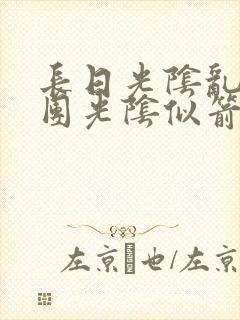 長日光陰亂
團光陰似箭
左京也/左京